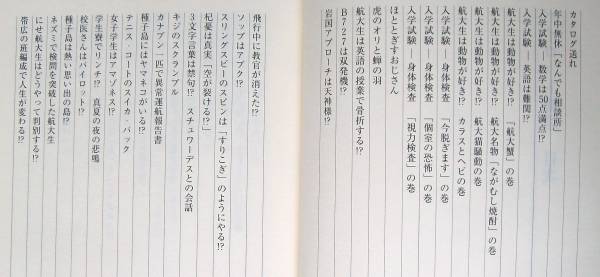 カタログ送れ
年中無休「なんでも相談所」
入学試験 数学は50点満点!?
入学試験 英語は難関!?
航大生は動物が好き!? 『航大蟹』の巻
航大生は動物が好き!? 航大名物『ながむし焼酎』の巻
航大生は動物が好き!? 航大猫騒動の巻
航大生は動物が好き!? カラスとヘビの巻
入学試験 身体検査 『今脱ぎます』の巻
入学試験 身体検査 『個室の恐怖』の巻
入学試験 身体検査 『視力検査』の巻
ほととぎすおじさん
虎のオリと蝉の羽
航大生は英語の授業で骨折する!?
B727は双発機!?
岩国アプローチは天神様!?
飛行中に教官が消えた!?
ソップはアブク!?
スリングスビーのスピンは「すりこぎ」のようにやる!?
杞憂は真実「空が裂ける!?」
3文字言葉は禁句!? スチュワーデスとの会話
キジのスクランブル
カナブン一匹で異常運航報告書
種子島にはヤマネコがいる!?
テニス・コートのスイカ・パック
女子学生はアマゾネス!?
学生寮でリンチ!? 真夏の夜の悲鳴
校医さんはパイロット!?
種子島は熱い思い出の島!?
ネズミで検問を突破した航大生
にせ航大生はどうやって判別する!?
帯広の班編成で人生が変わる!?